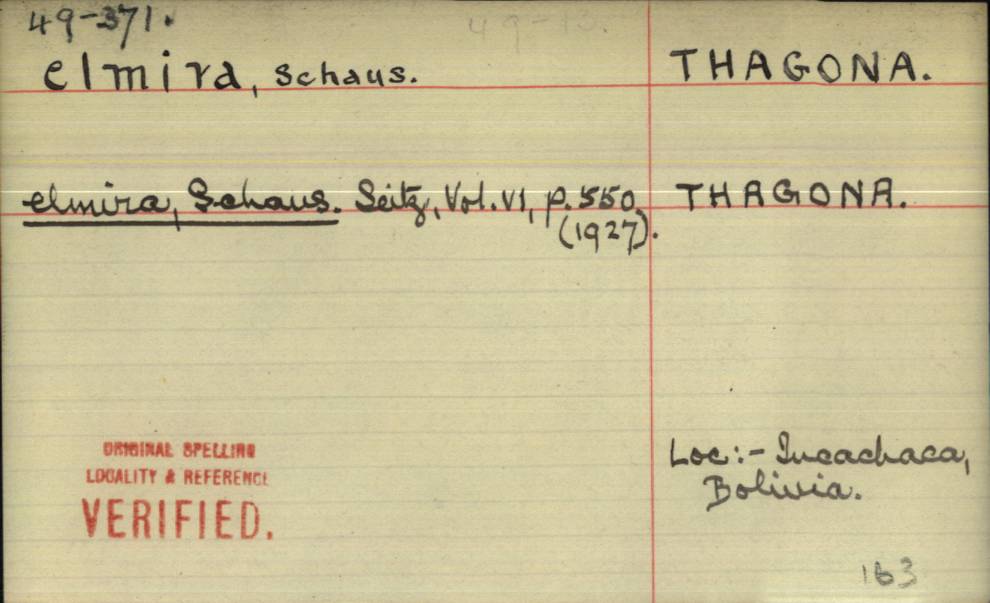 49-371.
49-13.
elmira, Schaus. THAGONA.
elmira, Schaus. Seitz, Vol. VI, p. 550, THAGONA.
(1927).
ORIGINAL SPELLING
LOCALITY & REFERENCE
VERIFIED.
Loc:- Incachaca,
Bolivia.
163